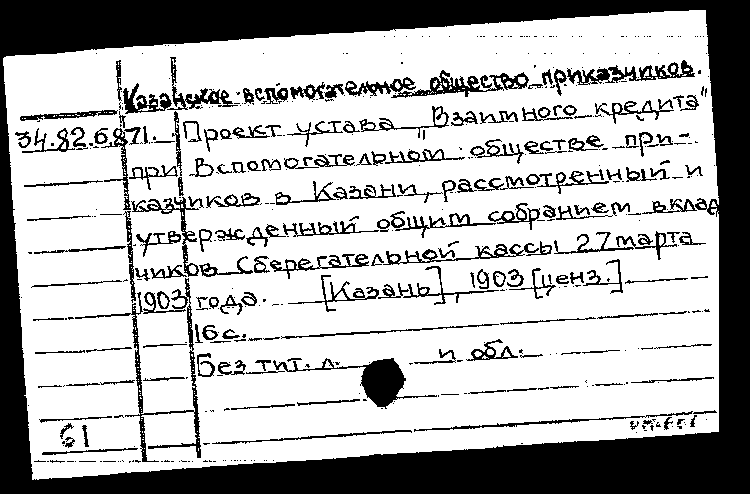 Казанское вспомогательное общество приказчиков.
34.82.6.871. Проект устава „Взаимного кредита"
при Вспомогательном обществе при-
казчиков в Казани, рассмотренный и
утвержденный общим собранием вклад
чиков Сберегательной кассы 27 марта
1903 года. [Казань], 1903 [ценз.].
16 с.
Без тит. л. и обл.
61